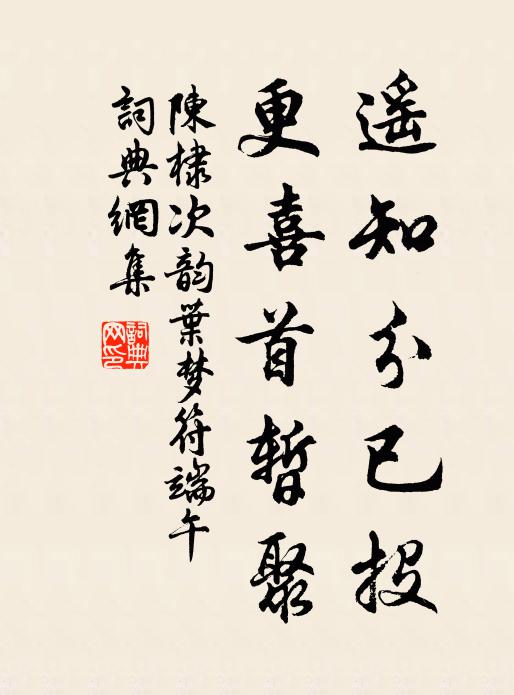 遥知分已投
更喜首暫聚
陳棣次韵葉梦符端午
詞典網集
詞典
网印